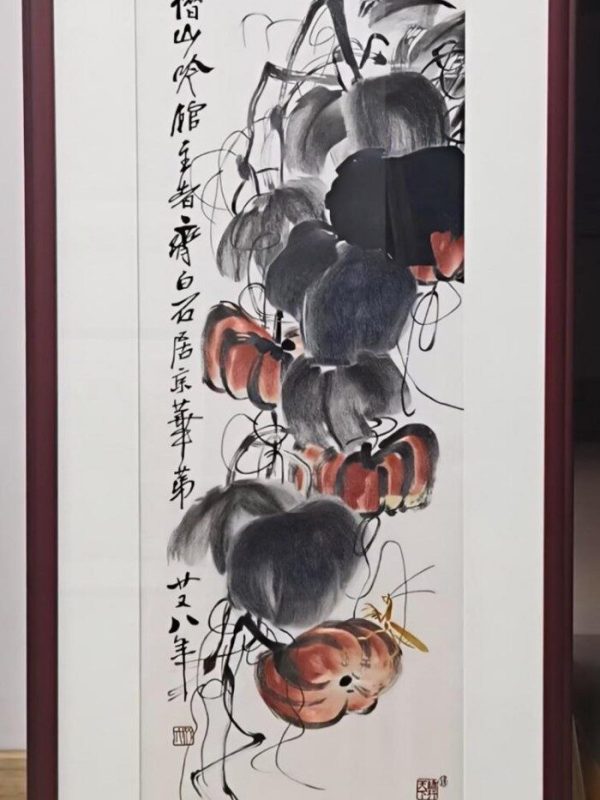 借山吟館主者齊白石居京華第廿又八年